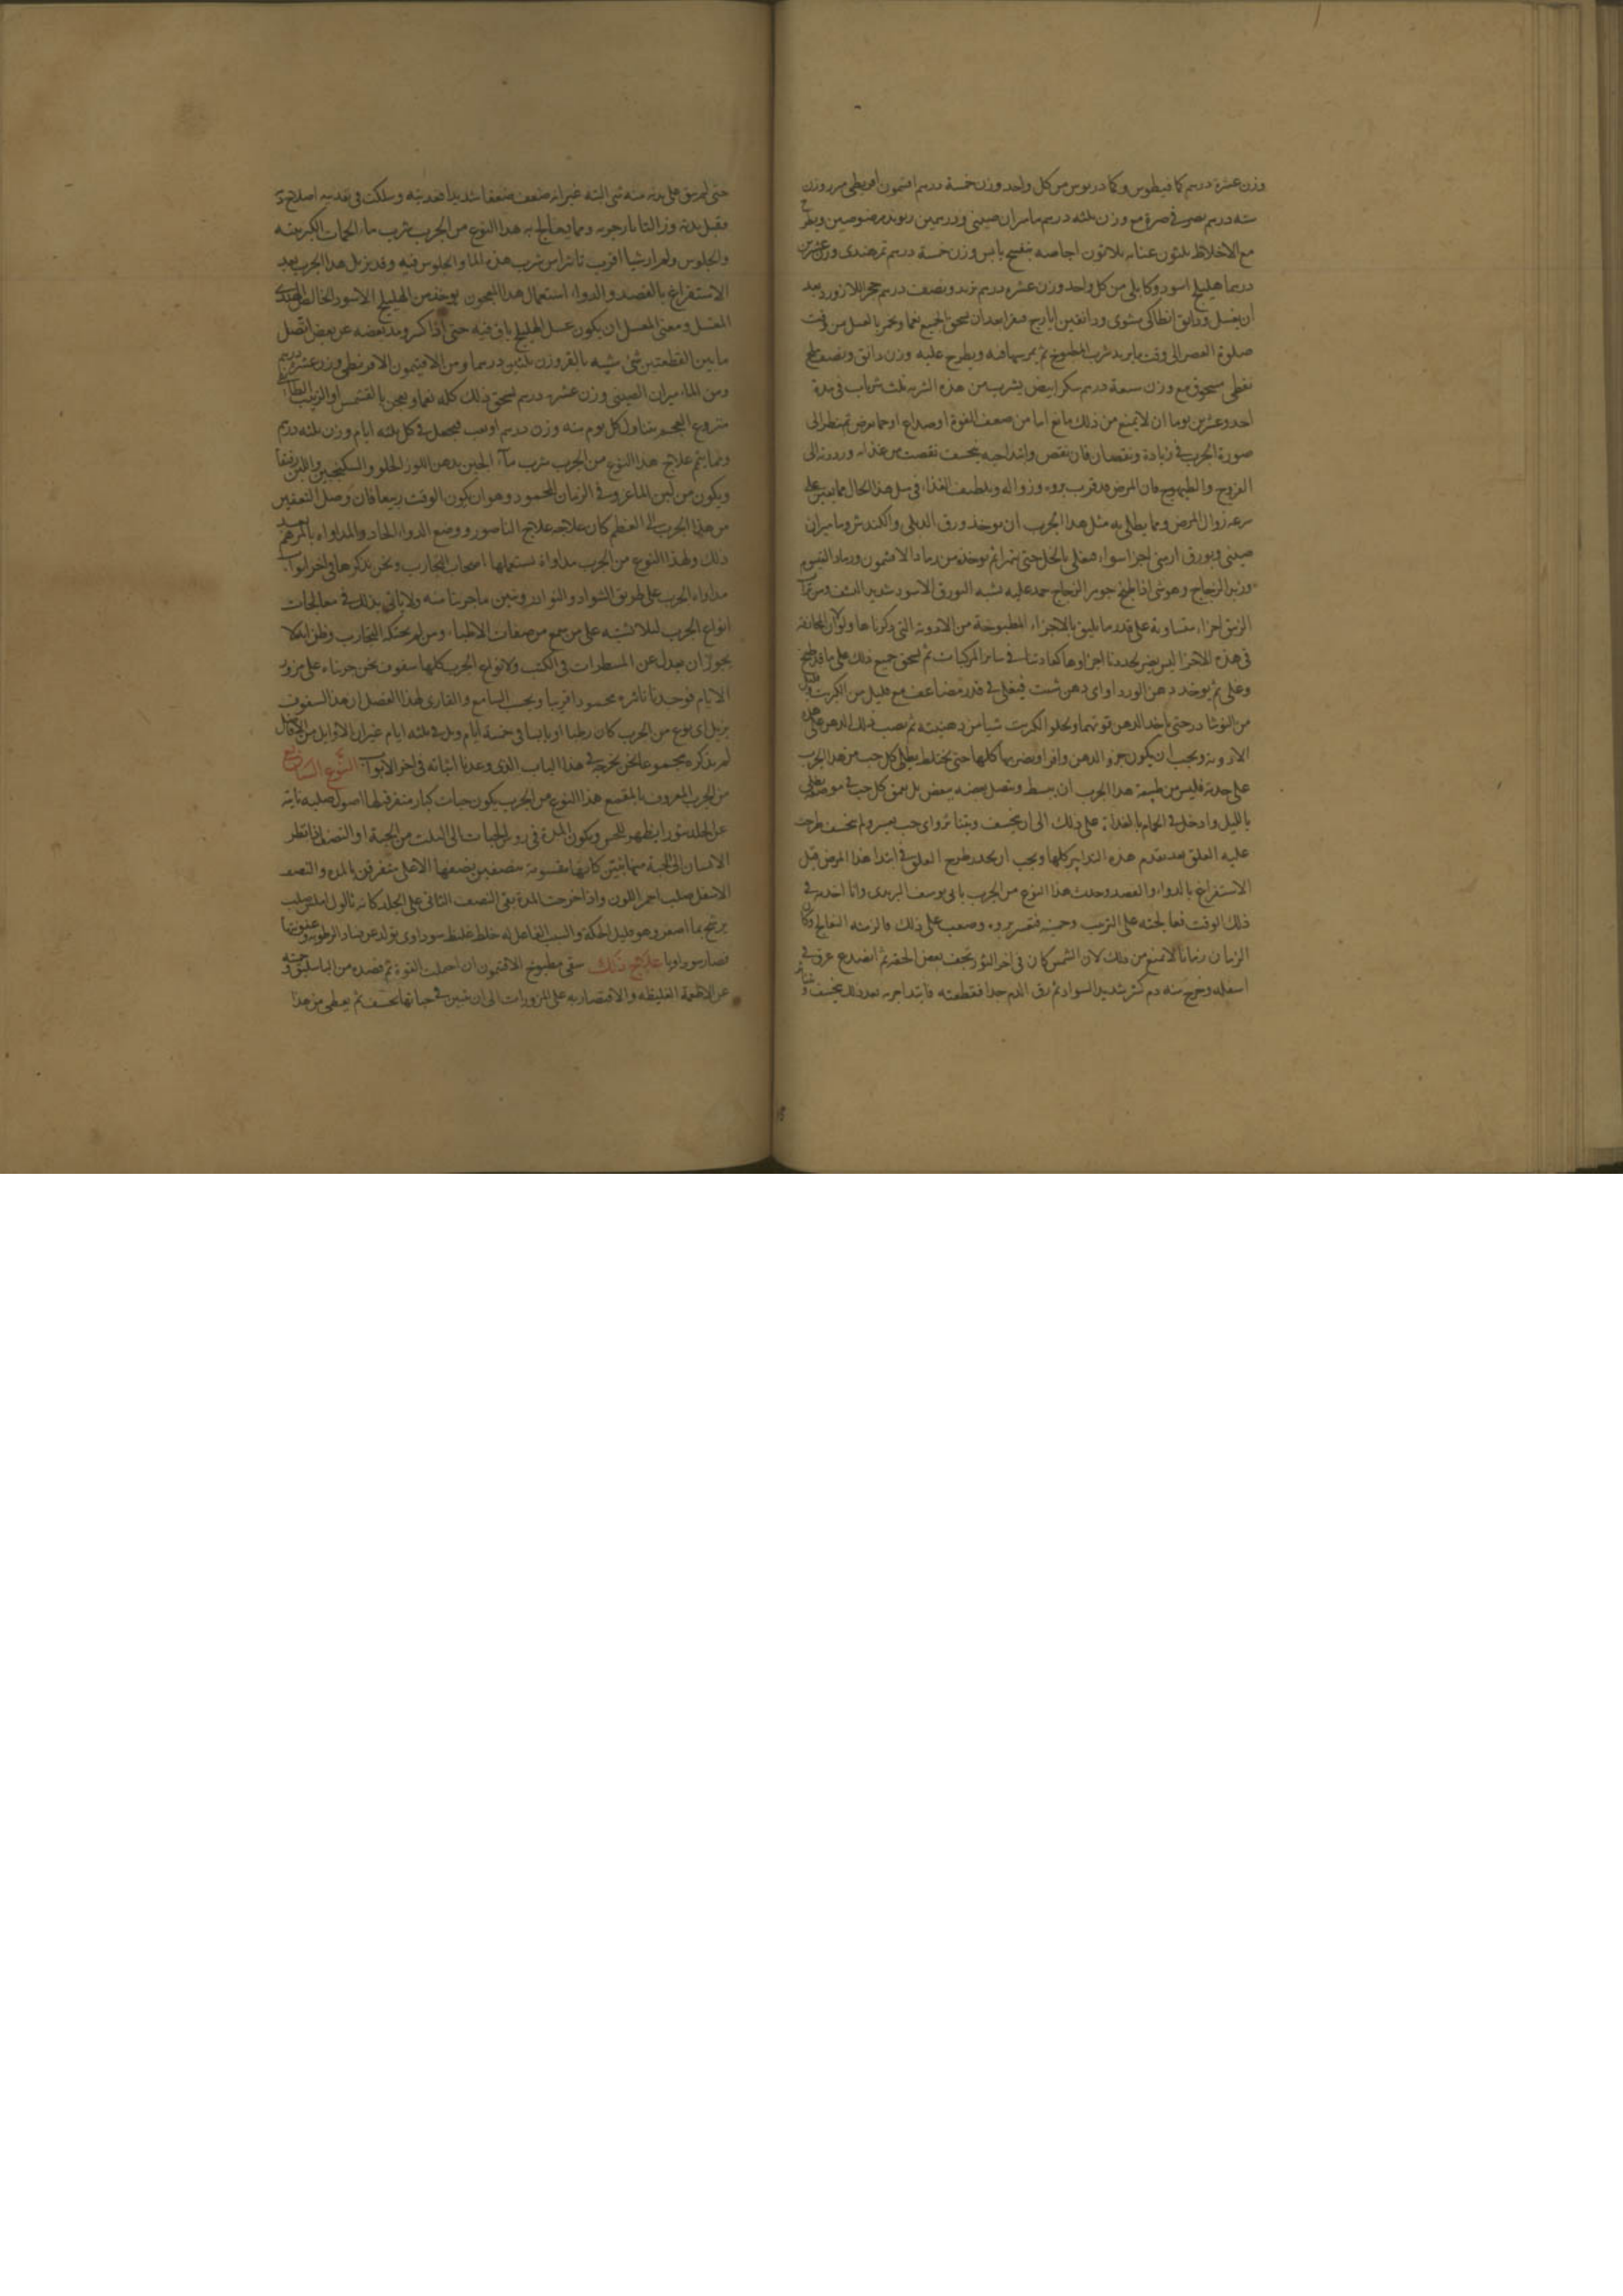 وزن عشرة درهم كافيطوس وكمادريوس من كل واحد وزن خمسة درهم افتيمون اقريطى مرر وزن
ستة درهم يصير فى صرة مع وزن ثلثه درهم ماميران صينى ودرهمين ريوند مرضوضين ويطرح
مع الاخلاط ثلثون عنابه ثلاثون اجاصه بنفسج يابس وزن خمسة درهم تمرهندى وزن عشرين
درهما هليلج اسود وكابلى من كل واحد وزن عشره درهم تربد ونصف درهم حجر اللازورد بعد
ان يغسل ودانق انطاكى مشوى ودانقين ايارج فيقرا بعد ان يسحق الجميع نعما ويخمر بالعسل من وقت
صلوة العصر الى وقت ما يريد شرب المطبوخ ثم يمرسها فيه ويطرح عليه وزن دانق ونصف ملح
نفطى مسحوق مع وزن سبعة درهم سكر ابيض يشرب من هذه الشربه ثلث شربات فى مدة
احد وعشرين يوما ان لا يمنع من ذلك مانع اما من ضعف القوة او صداع او حما مرض ثم ينظر الى
صورة الجرب فى زيادة ونقصان فان نقص وابتدا حبه يخسف نقصت من غذائه ورددته الى
الفروج والطيهوج فان المرض قد قرب بروءه وزواله وتلطيف الغذاء فى مثل هذا الحال مما يعين على
سرعه زوال المرض ومما يطلى به مثل هذا الجرب ان يوخذ ورق الدفلى والكندش وماميران
صينى وبورق ارمنى اجزا سواء فيغلى بالخل حتى يتهرا ثم يوخذ من رماد الافتيمون ورماد القيسوم
وزبد الزجاج وهو شى اذا طبخ جوهر الزجاج جمد عليه يشبه البورق الاسود شديد النشف ومن تراب
الزيبق اجزاء متساوية على قدر ما يليق بالاجزاء المطبوخة من الادوية التى ذكرناها ولولا ان المخالفه
فى هذه الاجزا ليس يضر لحددنا اجزاوها كعادتنا فى ساير المركبات ثم يسحق جميع ذلك على ما قد طبخ
وغلى ثم يوخذ دهن الورد او اى دهن شئت فيغلى فى قدر مضاعف مع قليل من الكبريت وقليل
من النوشادر حتى ياخذ الدهن قوتهما وتحلوا الكبريت شيا من دهنيته ثم يصب ذلك الدهن على هذه
الادويه ويجب ان يكون جزو الدهن وافرا ويضربها كلها حتى يختلط يطلى كل حب من هذا الجرب
على حدته فليس من طبيعة هذا الجرب ان ينبسط ويتصل بعضه ببعض بل يبقى كل حب فى موضعه يطلى
بالليل وادخل فى الحمام بالغداة على ذلك الى ان يخسف ويتناثر واى حب عسر ولم يخسف طرحت
عليه العلق بعد تقدم هذه التدابير كلها ويجب ان يحذر طرح العلق فى ابتدا هذا المرض قبل
الاستفراغ بالدواء والفصد وحدث هذا النوع من الجرب بابى يوسف اليزيدى وانا اخدمه فى
ذلك الوقت فعالجته على الترتيب وحميته فعسر بروءه وصعب على ذلك فالزمته التعالج وكان
الزمان زمانا لا تمنع من ذلك لان الشمس كان فى اخر الثور تجفف بعض الحفه ثم انصدع عرق فى
اسفله وخرج منه دم كثير شديد السواد ثم رق الدم جدا فقطعته فابتدا جربه بعد ذلك يخسف ويتناثر
حتى لم يبق على بدنه منه شى البته غير انه ضعف ضعفا شديدا فغديته وسلكت فى تغديته اصلاح
فقبل بدنه وزال ما نار جربه ومما يعالج به هذا النوع من الجرب شرب ماء الحمات الكبريتيه
والجلوس ولم ار شيا اقرب تاثيرا من شرب هذه الماء والجلوس فيه وقد يزيل هذا الجرب بعد
الاستفراغ بالفصد والدواء استعمال هذا المعجون يوخذ من الهليلج الاسود الخالص الهندى
المعسل ومعنى المعسل ان يكون عسل الهليلج باق فيه حتى اذا كسر ومد بعضه عن بعض اتصل
ما بين القطعتين شى شبيه بالقير وزن ثلثين درهما ومن الافتيمون الاقريطى وزن عشرة درهم
ومن الماميران الصينى وزن عشرة درهم يسحق ذلك كله نعما ويعجن بالقشمش او الزبيب الطائفى
منزوع العجم يتناول كل يوم منه وزن درهم او يحب فيجعل فى كل ثلثه ايام وزن ثلثه درهم
ومما يتم علاج هذا النوع من الجرب شرب ماء الجبن بدهن اللوز الحلو والسكنجبين واللبن رقيقا
ويكون من لبن الماعز وفى الزمان المحمود وهو ان يكون الوقت ربيعا فان وصل التعفين
من هذا الجرب الى العظم كان علاجه علاج الناصور ووضع الدواء الحاد والمداواه بالمرهم بعد
ذلك ولهذا النوع من الجرب مداواة يستعملها اصحاب التجارب ونحن نذكرها فى اخر ابواب
مداواه الجرب على طريق الشواد والنوادر ونبين ما جربنا منه ولا ياتى بذلك فى معالجات
انواع الجرب ليلا يشتبه على من سمع من صفات الاطباء ومن لم يحنكه التجارب وظن انه لا
يجوز ان يعدل عن المسطورات فى الكتب ولانواع الجرب كلها سفوف نحن جربناه على مرور
الايام فوجدنا تاثيره محمودا قريبا ويجب السامع والقارى لهذا الفصل ان هذا السفوف
يزيل اى نوع من الجرب كان رطبا او يابسا فى خمسة ايام وبل فى ثلثه ايام غير ان الاوايل من الافاضل
لم يذكره مجموعا نحن نخرجه فى هذا الباب الذى وعدنا اثباته فى اخر الابواب النوع السابع
من الجرب المعروف بالمقمع هذا النوع من الجرب يكون حبات كبار متفرقه لها اصول صلبه ناتيه
عن الجلد نتورا يظهر للحس ويكون المدة فى روس الحبات الى الثلث من الحبة او النصف اذا نظر
الانسان الى الحبة منها تبين كانها مقسومة بنصفين نصفها الاعلى متفرقن بالمده والنصف
الاسفل صلب احمر اللون واذا خرجت المدة بقى النصف الثانى على الجلد كانه ثالول املس صلب
يرشح بما اصفر وهو قليل الحكة والسبب الفاعل له خلط غليظ سوداوى يتولد عن فساد الرطوبه وعفونتها
فصار سوداويا علاج ذلك سقى مطبوخ الافتيمون ان احتملت القوة ثم فصده من الباسليق وحميته
عن الاطعمة الغليظه والاقتصار به على المزورات الى ان تبين فى حباتها تخسف ثم يعطى من هذا